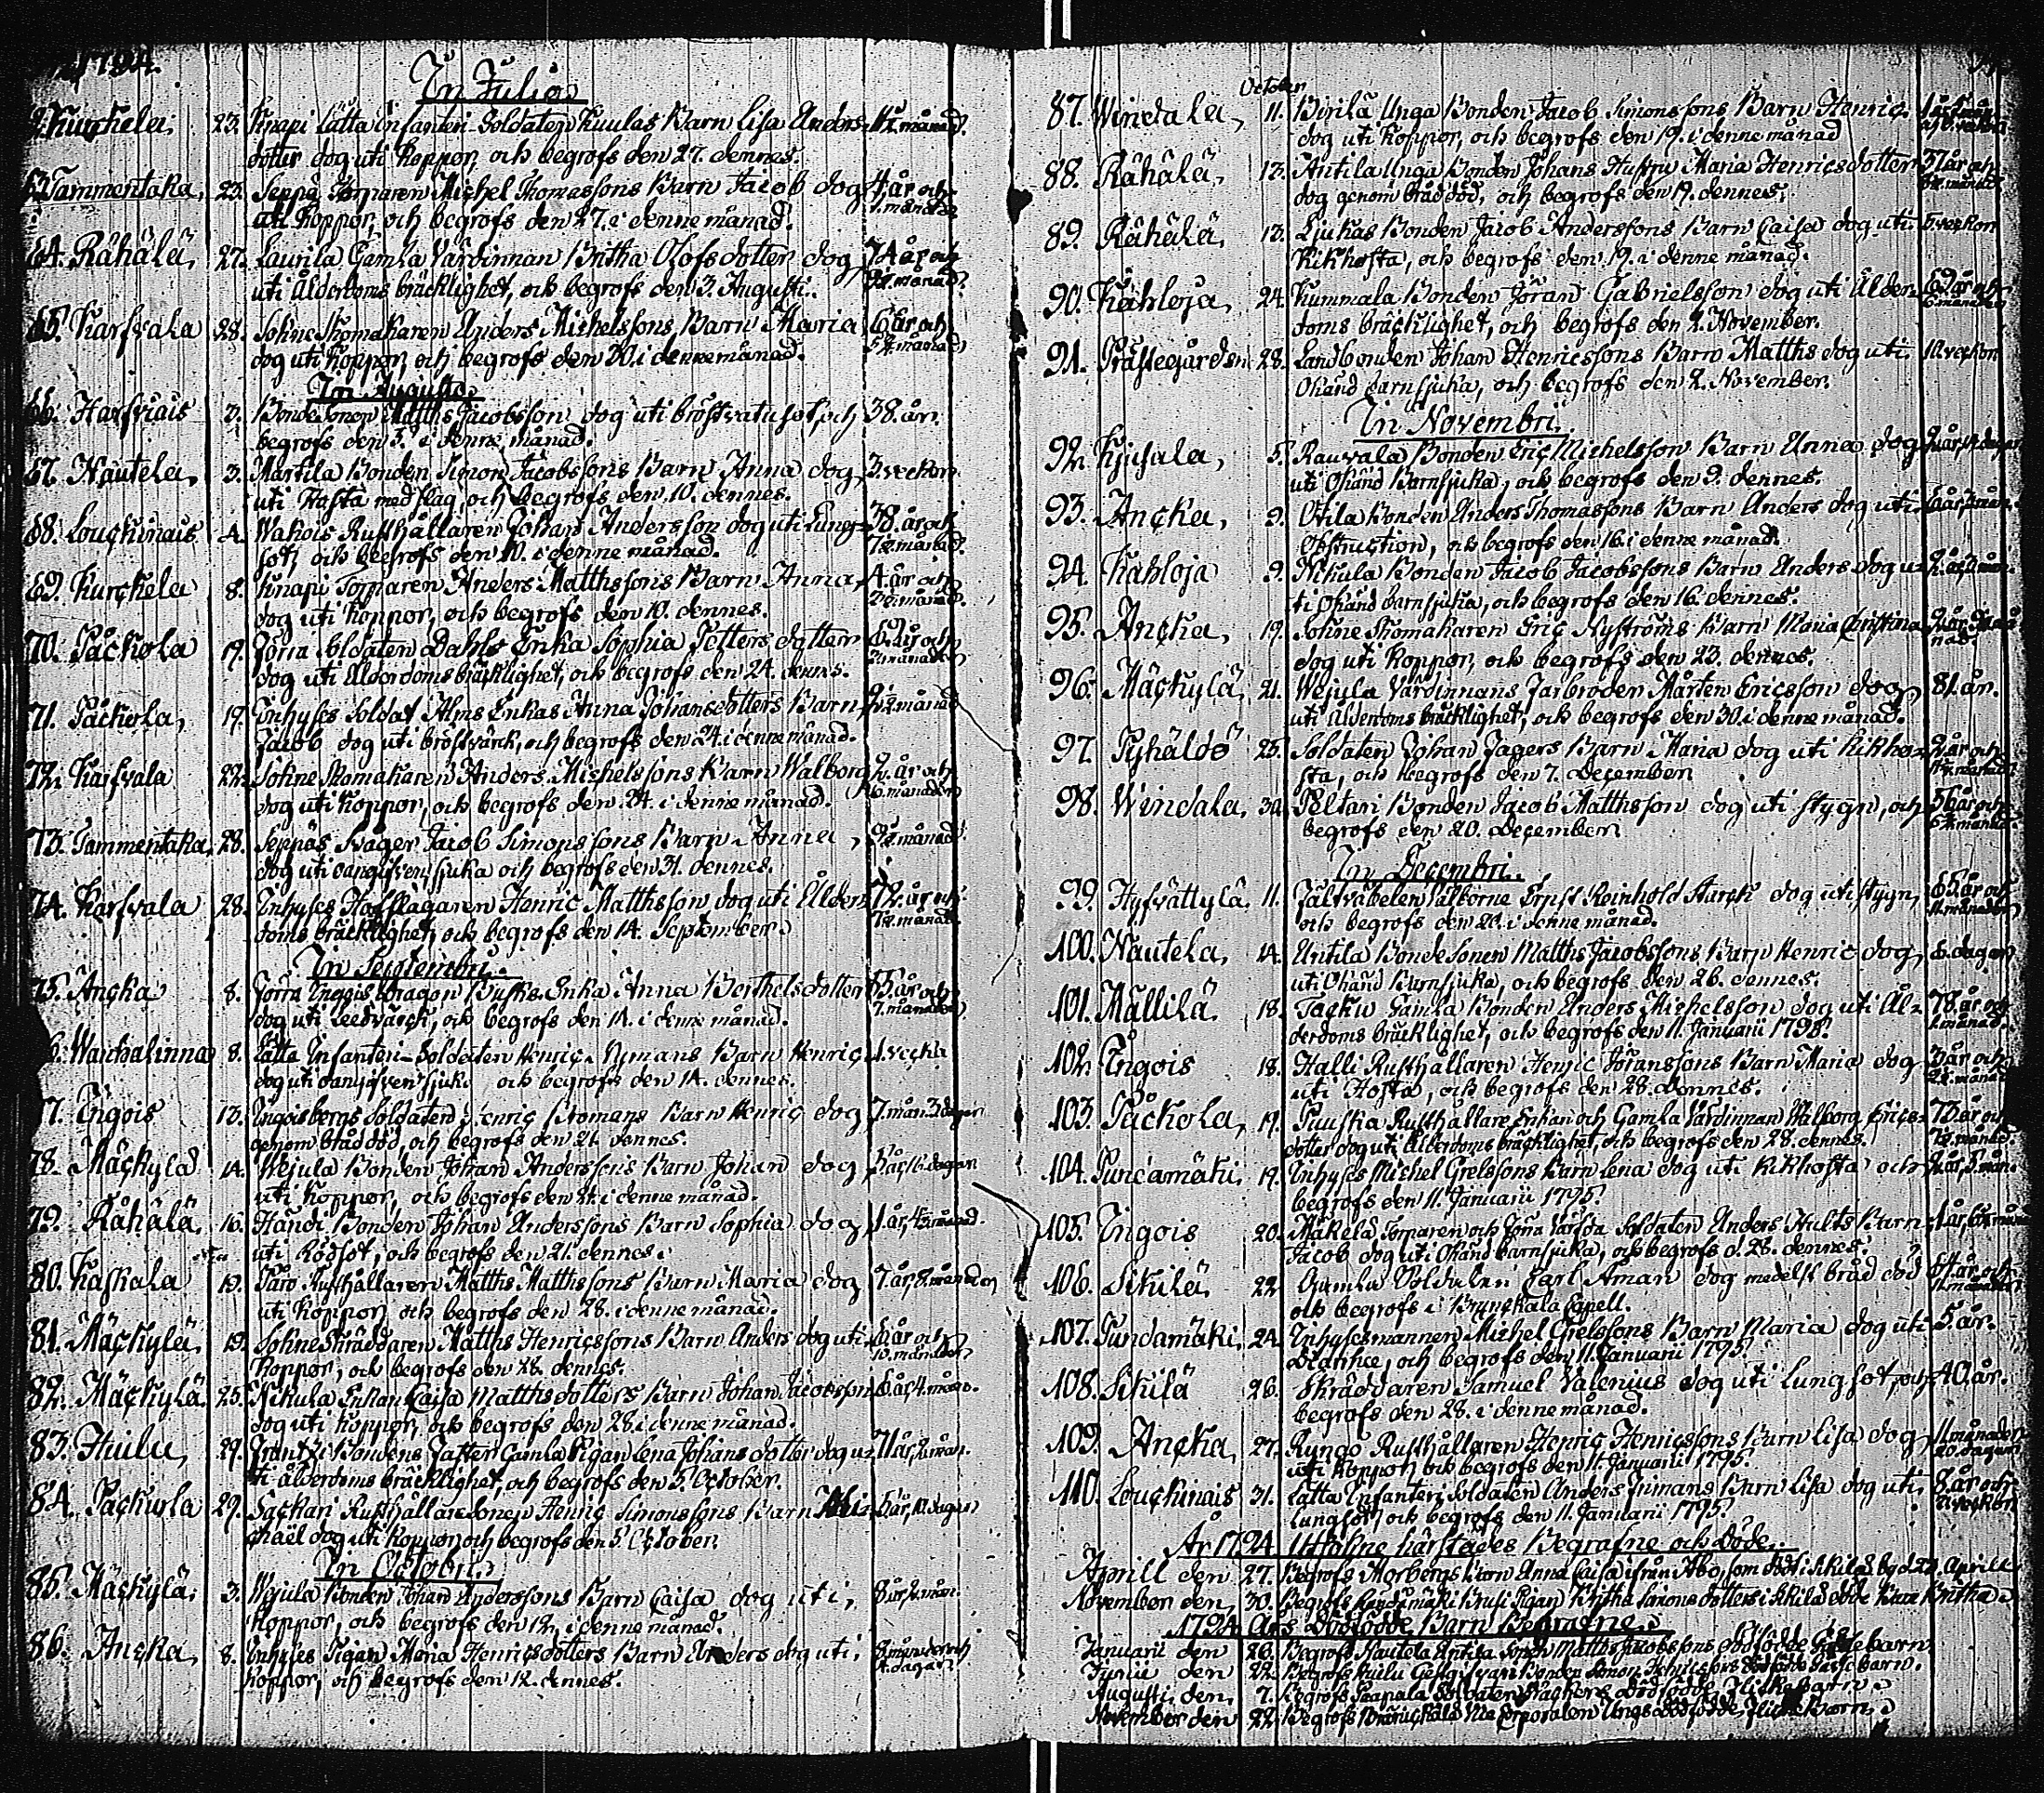 1794.
In Julio
Kurckela, 23. Knapi Lätta Infanteri Soldaten Kuulas Barn Lisa Anders- månad.
dotter dog uti Koppor, och begrofs den 27. dennes.
Tammentaka, 23. Seppä Torparen Michel Thomassons Barn Jacob dog 4 år och
uti Koppor, och begrofs den 27. i denne månad. månader
64. Rähälä, 27. Laurila Gamla Värdinnan Britha Olofsdotter dog 74 år och
uti Ålderdoms bräcklighet, och begrofs den 3. Augusti. månad.
65. Karfvala 28. Sokne Skomakaren Anders Michelssons Barn Maria 6 år och
dog uti Koppor, och begrofs den 20. i denne månad. månad
In Augusto
66. Harfvais 2. Bonde Sonen Matths Jacobsson dog uti bröstvatusot, och 38. år.
begrofs den 3. i denne månad.
67. Nautela, 3. Marttila Bonden Simon Jacobssons Barn Anna dog 3. veckor.
uti Hosta med slag och begrofs den 10. dennes.
68. Louckinais 4. Wahois Rusthållaren Johan Andersson dog uti Lung- 38. år och
sot, och begrofs den 10. i denne månad. månad.
69. Kurckela 8. Knapi Torparen Anders Matthssons Barn Anna 4. år och
dog uti Koppor, och begrofs den 10. dennes. månad.
70. Päckola 19. Jörra Soldaten Dahls Enka Sophia Petters dotter 62. år och
dog uti Ålderdoms bräcklighet, och begrofs den 24. dennes. månader
71. Päckola, 19. Inhyses Soldat Alms Enkas Anna Johansdotters Barn månad
Jacob dog uti bröstvärck, och begrofs den 24. i denne månad.
72. Karfvala 22. Sokne Skomakaren Anders Michelssons Barn Walborg 2. år och
dog uti Koppor, och begrofs den 24. i denne månad. 6. månader
73. Tammentaka, 28. Seppäs Svåger Jacob Simonssons Barn Anna, månad.
dog uti oangifven sjuka och begrofs den 31. dennes.
74. Karfvala 28. Inhyses Hofslagaren Henric Matthsson dog uti Ålder- 72. år och
doms bräcklighet, och begrofs den 14. September. månad.
In Septembri.
75. Ancka 8. Jörra Ingois Dragon Busks Enka Anna Berthels dotter 65. år och
dog uti Ledvärck, och begrofs den 14. i denne månad. 7. månader
Wanhalinna 8. Lätta Infanteri Soldaten Henric Nymans Barn Henric 1. vecka
dog uti oangifven sjuka och begrofs den 14. dennes.
Ingois 13. Ingoisbergs Soldaten Henric Bromans Barn Henric dog 7. mån. 3. dagar
genom bråd död, och begrofs den 21. dennes.
78. Mäckylä 14. Wejula Bonden Johan Anderssons Barn Johan dog 5. år, 16. dagar
uti Koppor, och begrofs den 21. i denne månad.
79. Rähälä, 16. Handi Bonden Johan Anderssons Barn Sophia dog 1. år, månad.
uti Rödsot, och begrofs den 21. dennes.
80. Kaskala 19. Paro Rusthållaren Matths Matthssons Barn Maria dog 7. år, 8. månader
uti Koppor, och begrofs den 28. i denne månad.
81. Mäckylä, 19. Sokne Skräddaren Matths Henricssons Barn Anders dog uti 6. år och
Koppor, och begrofs den 28. dennes. 10. månader
82. Mäckylä 25. Skula Enkan Caisa Matths dotters Barn Johan Jacobsson 6. år, 4. mån.
dog uti Koppor, och begrofs den 28. i denne månad.
83. Huilu 29. Bondens Faster Gamla Pigan Lena Johans dotter dog u- 71. år, mån.
ti ålderdoms bräcklighet, och begrofs den 5. October.
84. Päckola 29. Sackari Rusthållare Sonen Henric Simonssons Barn Mi- 5. år, dagar
chaël dog uti Koppor och begrofs den 5. October.
In Octobri.
85. Mäckylä, 3. Wejula Bonden Johan Anderssons Barn Caisa dog uti, 8. år, 2. mån.
Koppor, och begrofs den 12. i denne månad.
86. Ancka 8. Inhyses Pigan Maria Henricsdotters Barn Anders dog uti, 8. månader och
Koppor, och begrofs den 12. dennes. dagar
October
87. Windala, 11. Birilä Unga Bonden Jacob Simonssons Barn Henric
dog uti Koppor, och begrofs den 19. i denne månad
88. Rähälä, 12. Antila Unga Bonden Johans Hustru Maria Henricsdotter 37 år och
dog genom bråd död, och begrofs den 19. dennes. månader
89. Rähälä, 13. Liukas Bonden Jacob Anderssons Barn Caisa dog uti 5. veckor
Kikhosta, och begrofs den 19. i denne månad.
90. Kähloja, 24. Kummala Bonden Jöran Gabrielsson dog uti Ålder- 69 år och
doms bräcklighet, och begrofs den 2. November. 6. månader
91. Prästegården 28. Landbonden Johan Henricssons Barn Matths dog uti 10. veckor
Okänd barnsjuka, och begrofs den 2. November.
In Novembri.
92. Kjusala, 5. Rauvala Bonden Eric Michelsson Barn Anna dog
uti Okänd Barnsjuka, och begrofs den 9. dennes.
93. Ancka, 9. Otila Bonden Anders Thomassons Barn Anders dog uti
Obstruction, och begrofs den 16. i denne månad.
94. Kähloja 9. Nikula Bonden Jacob Jacobssons Barn Anders dog u-
ti Okänd barnsjuka, och begrofs den 16. dennes.
95. Ancka, 19. Sokne Skomakaren Eric Nyströms Barn Maria Christina
dog uti Koppor, och begrofs den 23. dennes.
96. Mäckylä, 21. Wejula Värdinnans Farbroder Mårten Ericsson dog 81. år.
uti Ålderdoms bräcklighet, och begrofs den 30. i denne månad.
97. Pyhäldö 25. Soldaten Johan Jagers Barn Maria dog uti Kikho- 2. år och
sta, och begrofs den 7. December månad.
98. Windala, 30. Peltari Bonden Jacob Matthsson dog uti stygn, och 56 år och
begrofs den 20. December månad.
In Decembri.
99. Hyfvättylä. 11. Fältväbelen Välborne Ernst Reinhold Starck dog uti stygn, 65. år och
och begrofs den 21. i denne månad. 11. månader
100. Nautela, 14. Antila Bonde Sonen Matths Jacobssons Barn Henric dog, 6. dagar
uti Okänd Barnsjuka, och begrofs den 26. dennes.
101. Mällilä. 18. Tacku Gamla Bonden Anders Michelsson dog uti Ål- 78. år och
derdoms bräcklighet, och begrofs den 11. Januarii 1795. månad.
102. Ingois 18. Halli Rusthållaren Henric Jöranssons Barn Maria dog 3. år och
uti Hosta, och begrofs den 28. dennes. månad
103. Päckola, 19. Puuska Rusthållare Enkan och Gamla Värdinnan Walborg Erics- 73. år och
dotter dog uti Ålderdoms bräcklighet, och begrofs den 28. dennes. månad.
104. Pundamäki, 19. Inhyses Michel Grelssons Barn Lena dog uti Kikhosta och 2. år, 5. mån.
begrofs den 11. Januarii 1795.
105. Ingois 20. Mäkelä Torparen och Jörra Värfda Soldaten Anders Hults Barn
Jacob dog uti Okänd barnsjuka, och begrofs d. 28. dennes.
106. Skilä. 22 Gamla Soldaten Carl Åman dog medelst bråd död 64. år och
och begrofs i Brunkala Capell. 11. månader
107. Pundamäki, 24. Inhysesmannen Michel Grelssons Barn Maria dog uti 5. år.
Diarrhee, och begrofs den 11. Januarii 1795.
108. Skilä 26. Skräddaren Samuel Valenius dog uti Lungsot, och 40. år.
begrofs den 28. i denne månad.
109. Ancka, 27. Rungo Rusthållaren Henric Henricssons Barn Lisa dog 11. månader
uti Koppor, och begrofs den 11. Januarii 1795. 20. dagar
110. Louckinais 31. Lätta Infanteri Soldaten Anders Inmans Barn Lisa dog uti 8. år och
Lungsot, och begrofs den 11. Januarii 1795. veckor
År 1794 Uttäkne härstädes Begrafne och Döde.
Aprill den 27. Begrofs Morbergs Barn Anna Caisa ifrån Åbo, som dödt i Skilä by d 22. Aprill
November den 30. Begrofs Pundamäki Pigan Britha Simons dotters i Skilä döde Barn Britha
1794. Års Dödfödde Barn Begrafne.
Januarii den 26. Begrofs Nautela Antila Sonen Matths Jacobssons dödfödde Gossebarn
Junii den 22. Begrofs Huilu Bonden Simon Henricssons dödfödde Gossebarn.
Augusti den 7. Begrofs Paapala Soldaten dödfödde Flickebarn
November den 22. Begrofs Vice Corporalen Ungs dödfödde Flicke Barn